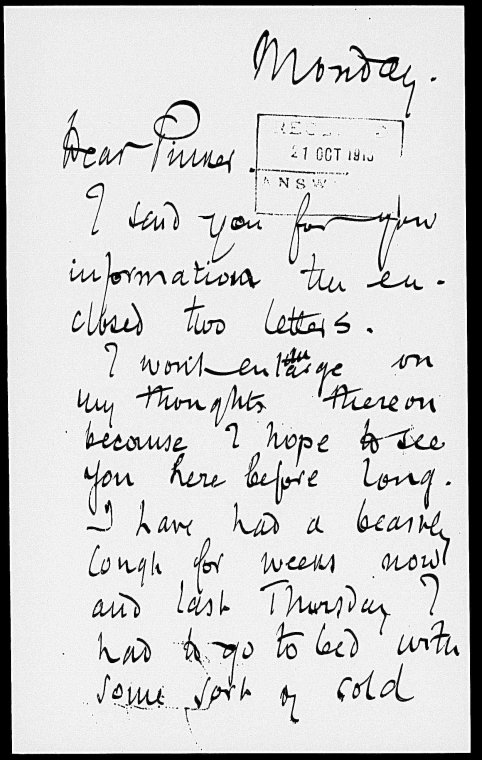 Monday.
Dear Pinker.
RECEIVED
21 OCT 191
ANSW
I send you for your
information the en-
closed two letters.
I won't enlarge on
my thoughts thereon
because I hope to see
you here before long.
I have had a beastly
cough for weeks now
and last Thursday I
had to go to bed with
some sort of cold